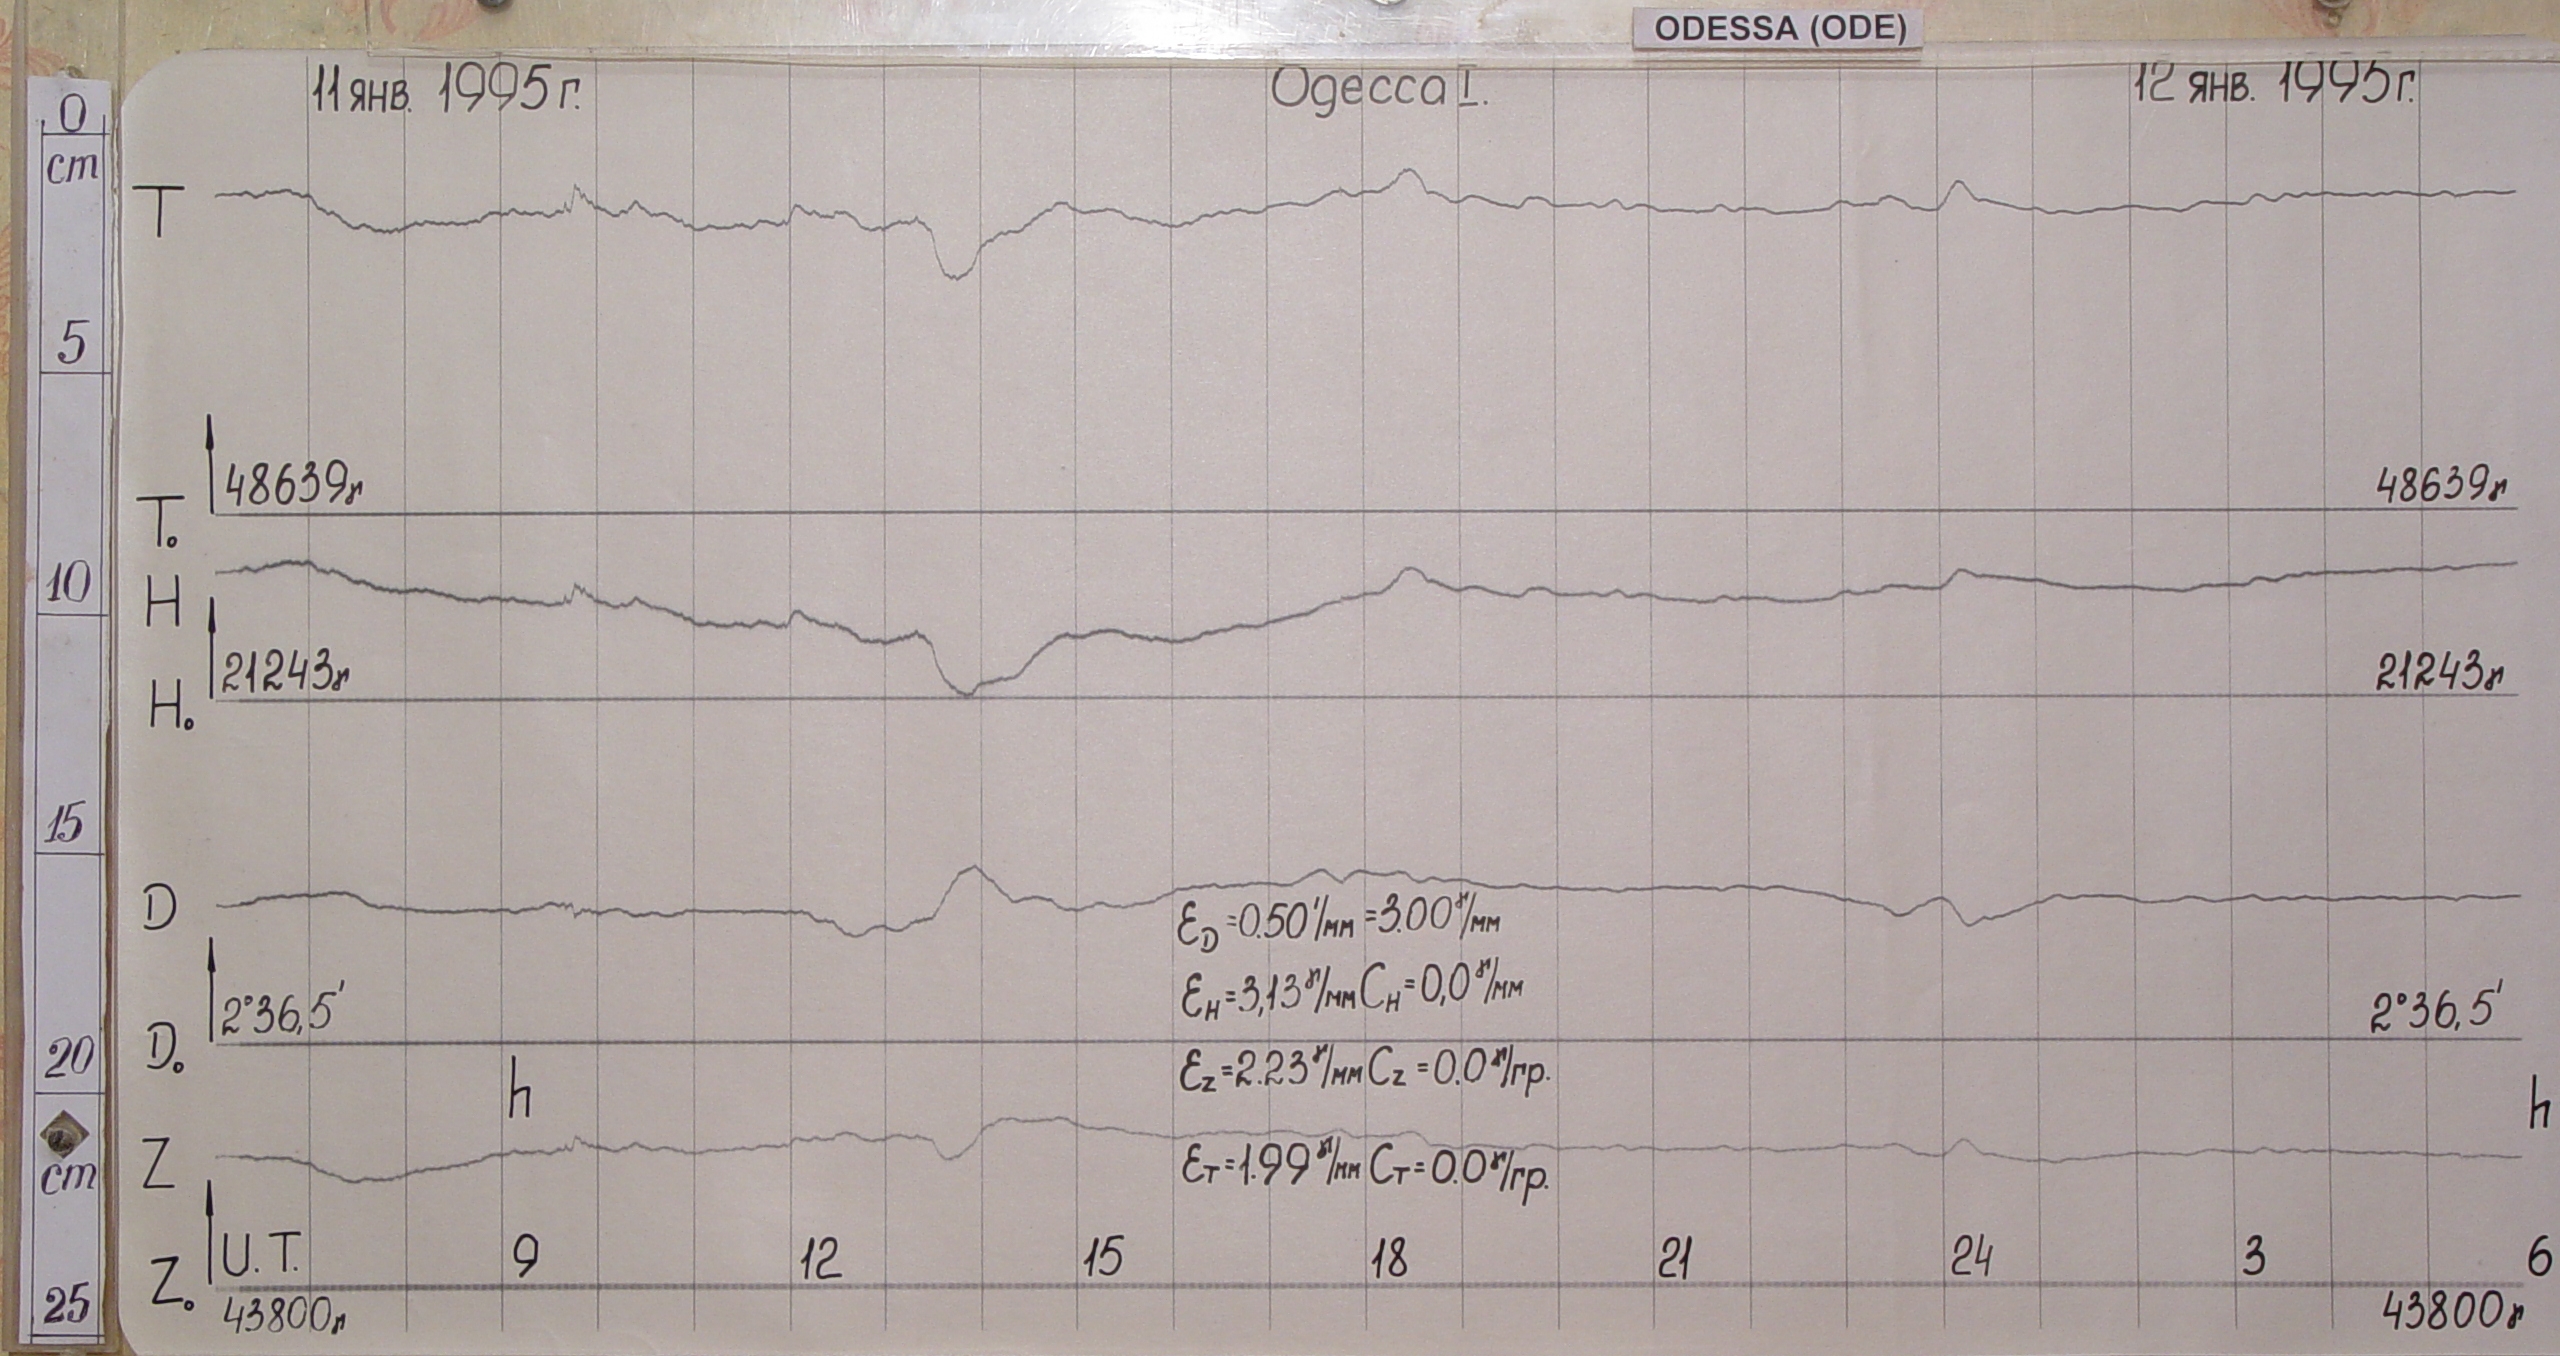 ODESSA (ODE)
11 янв. 1995 г. Одесса I. 12 янв. 1995 г.
0
cm
5
10
15
20
cm
25
T
48639γ 48639γ
T₀
H
21243γ 21243γ
H₀
D
ε_D = 0.50'/мм = 3.00γ/мм
ε_H = 3,13γ/мм C_H = 0,0γ/мм
2°36,5' 2°36,5'
D₀
h h
ε_Z = 2.23γ/мм C_Z = 0.0γ/гр.
Z
ε_T = 1.99γ/мм C_T = 0.0γ/гр.
U.T. 9 12 15 18 21 24 3 6
Z₀
43800γ 43800γ